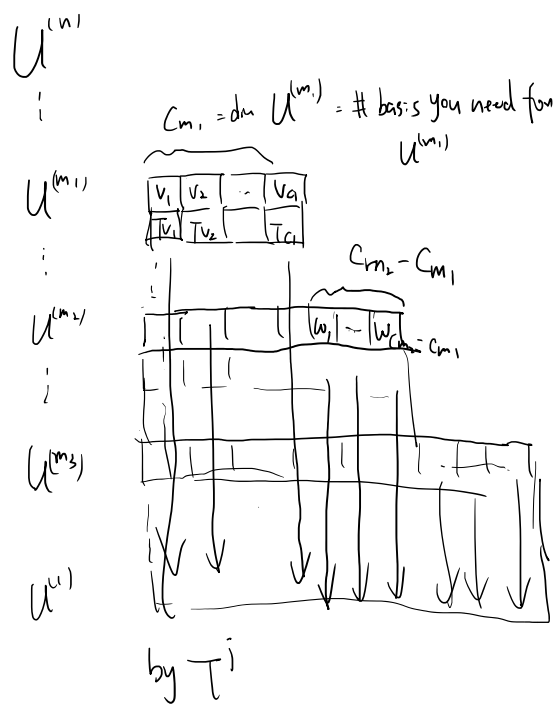 U^(n)
⋮
C_{m_1} = dim U^(m_1) = # basis you need for
U^(m_1)
U^(m_1) V_1 V_2 … V_{C_1}
TV_1 TV_2 T_{C_1}
⋮
C_{m_2} − C_{m_1}
U^(m_2) W_1 – W_{C_{m_2} − C_{m_1}}
⋮
U^(m_3)
U^(1)
by T^i